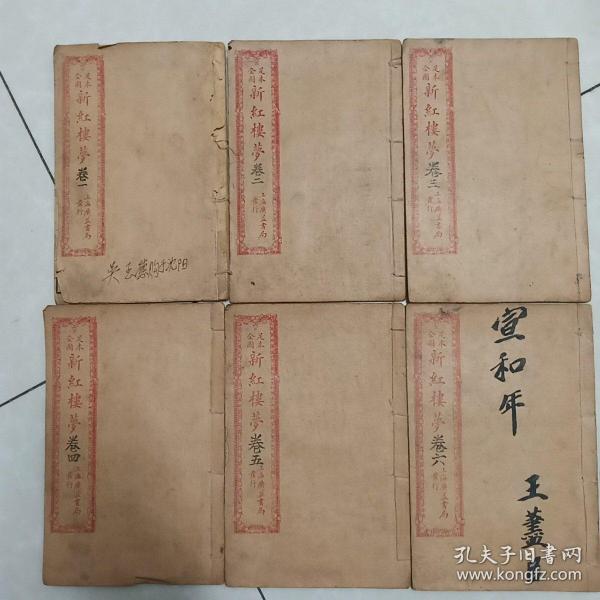 足本
全圖
新紅樓夢
卷一
上海廣益書局
發行
足本
全圖
新紅樓夢
卷二
上海廣益書局
發行
足本
全圖
新紅樓夢
卷三
上海廣益書局
發行
足本
全圖
新紅樓夢
卷四
上海廣益書局
發行
足本
全圖
新紅樓夢
卷五
上海廣益書局
發行
足本
全圖
新紅樓夢
卷六
上海廣益書局
發行
宣和年
王
孔夫子旧书网
www.kongfz.com